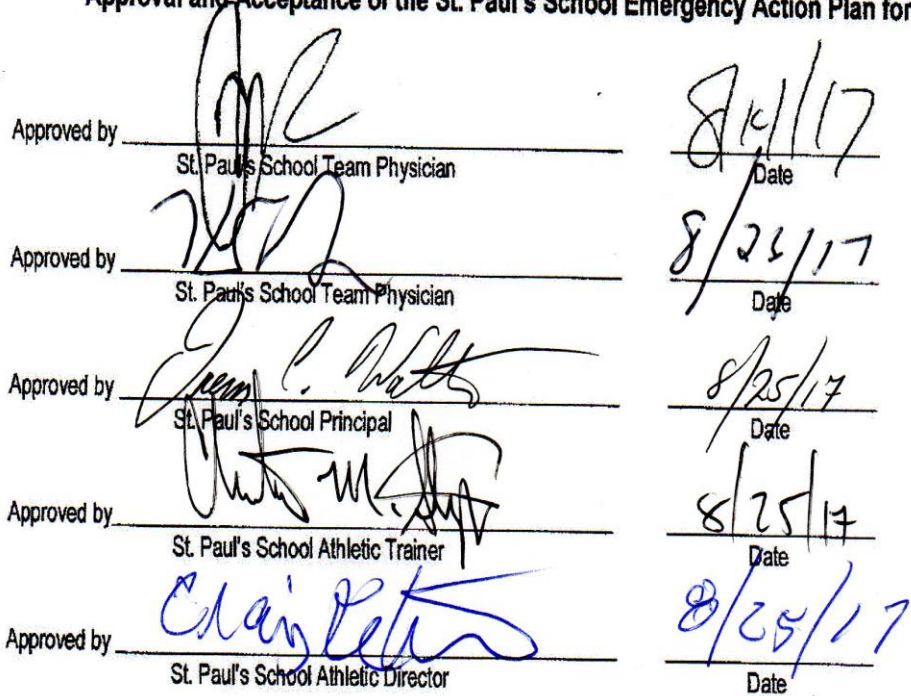 Approval and Acceptance of the St. Paul's School Emergency Action Plan for
Approved by
St. Paul's School Team Physician Date
Approved by 8/23/17
St. Paul's School Team Physician Date
Approved by 8/25/17
St. Paul's School Principal Date
Approved by 8/25/17
St. Paul's School Athletic Trainer Date
Approved by Craig 8/25/17
St. Paul's School Athletic Director Date